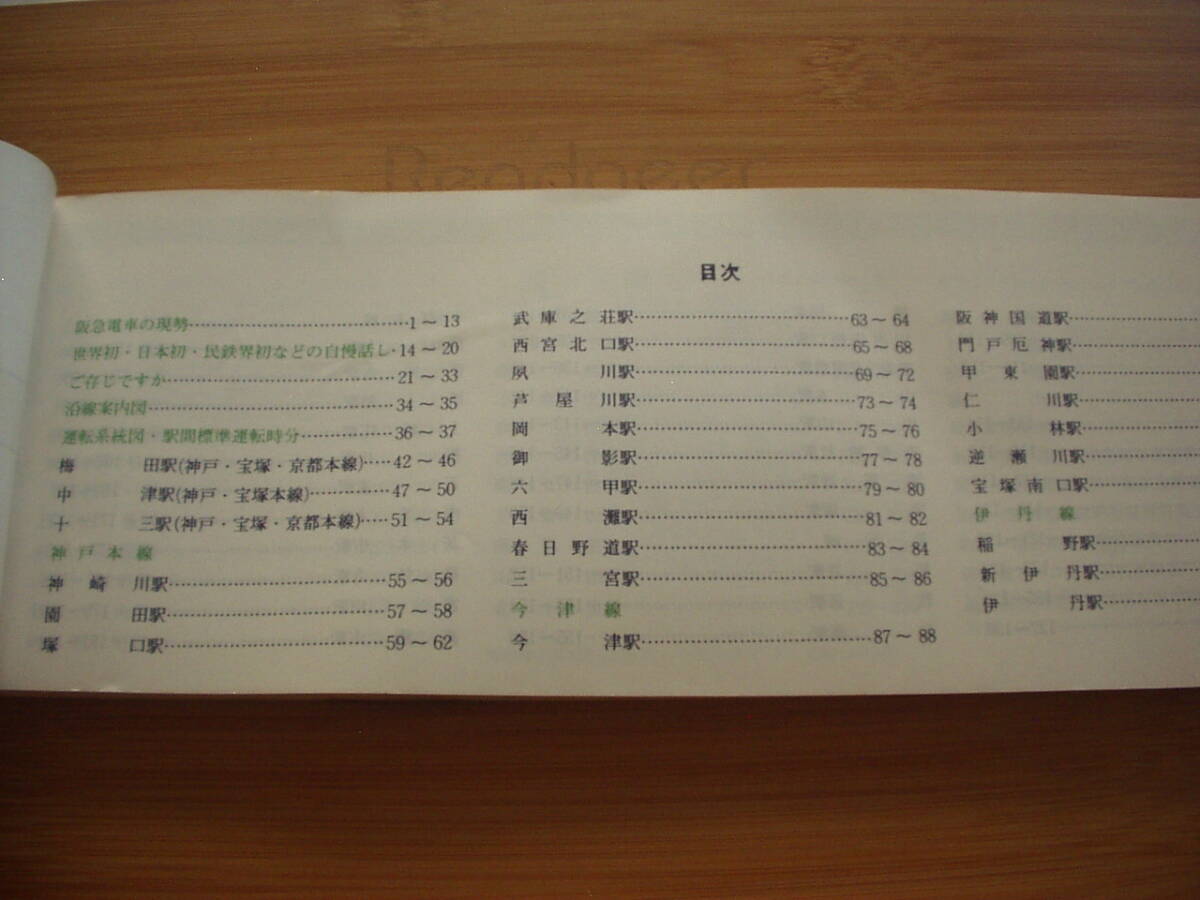 目次
阪急電車の現勢……………………………1～13
世界初・日本初・民鉄界初などの自慢話し・14～20
ご存じですか……………………………21～33
沿線案内図………………………………34～35
運転系統図・駅間標準運転時分…………36～37
梅田駅(神戸・宝塚・京都本線)……42～46
中津駅(神戸・宝塚本線)……………47～50
十三駅(神戸・宝塚・京都本線)……51～54
神戸本線
神崎川駅…………………………………55～56
園田駅……………………………………57～58
塚口駅……………………………………59～62
武庫之荘駅………………………………63～64
西宮北口駅………………………………65～68
夙川駅……………………………………69～72
芦屋川駅…………………………………73～74
岡本駅……………………………………75～76
御影駅……………………………………77～78
六甲駅……………………………………79～80
西灘駅……………………………………81～82
春日野道駅………………………………83～84
三宮駅……………………………………85～86
今津線
今津駅……………………………………87～88
阪神国道駅………………
門戸厄神駅………………
甲東園駅………………
仁川駅………………
小林駅………………
逆瀬川駅………………
宝塚南口駅………………
伊丹線
稲野駅………………
新伊丹駅………………
伊丹駅………………